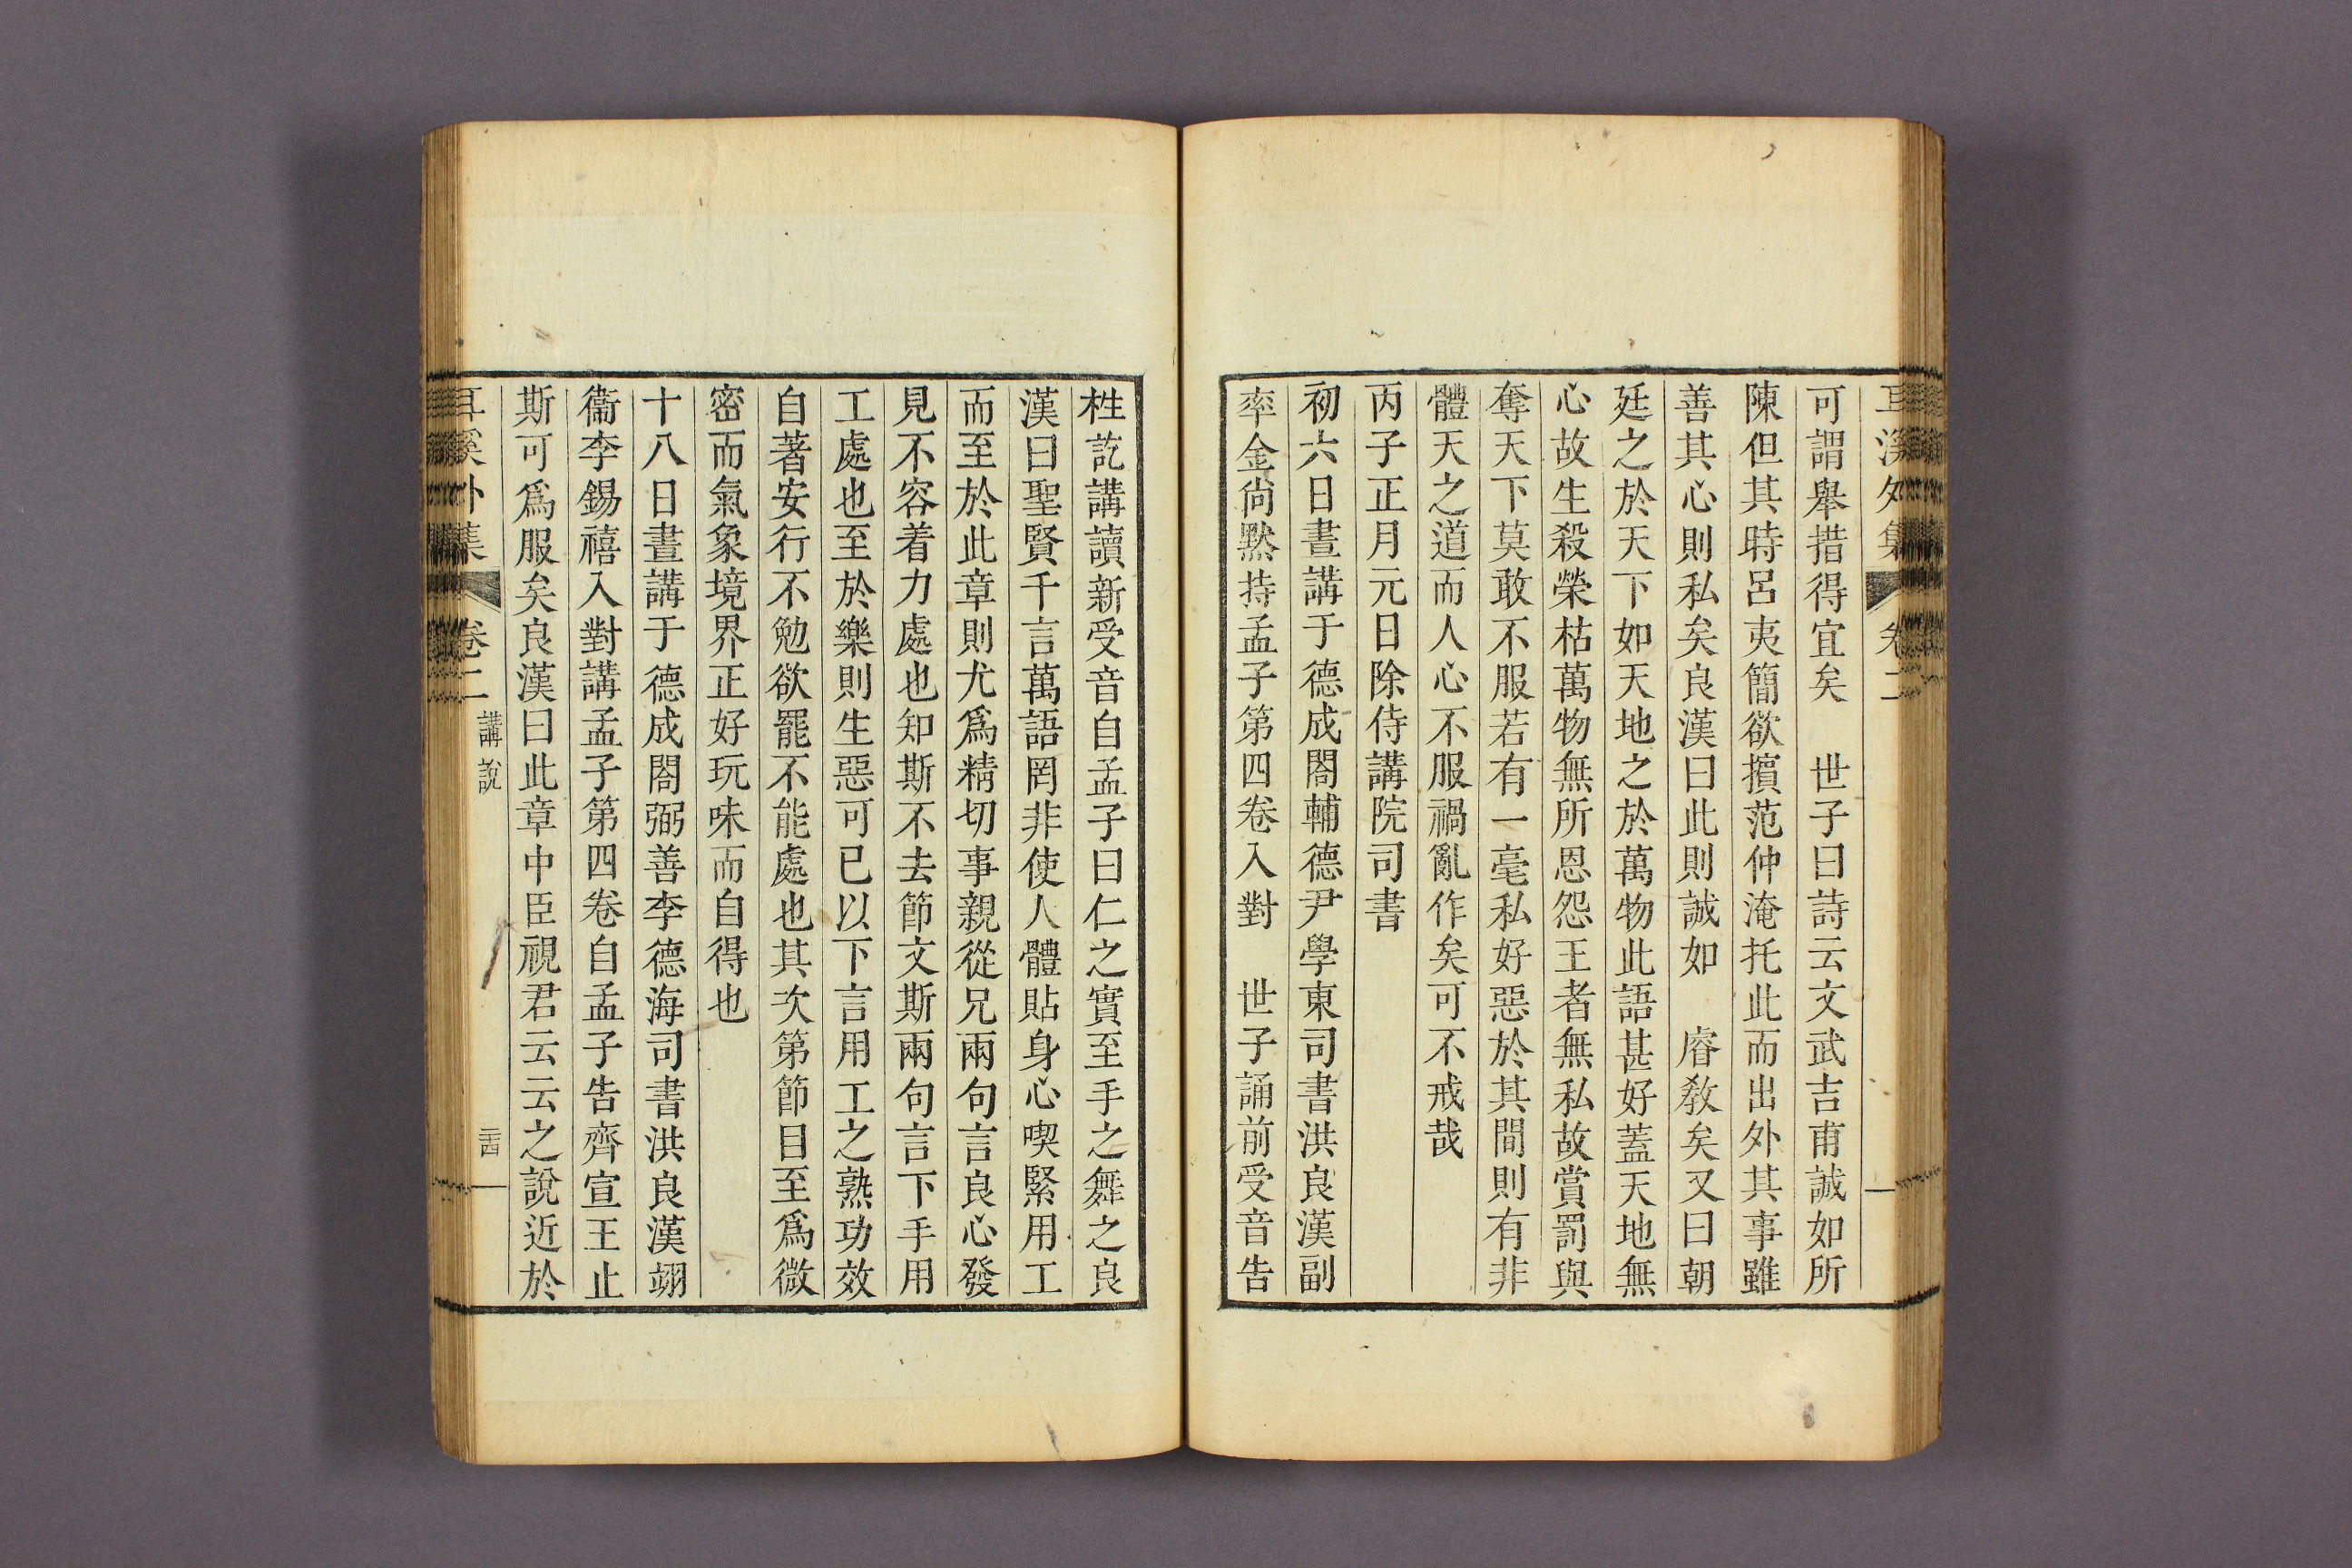 耳溪外集 卷二
可謂舉措得宜矣 世子曰詩云文武吉甫誠如所
陳但其時呂夷簡欲擯范仲淹托此而出外其事雖
善其心則私矣良漢曰此則誠如 睿敎矣又曰朝
廷之於天下如天地之於萬物此語甚好蓋天地無
心故生殺榮枯萬物無所恩怨王者無私故賞罰與
奪天下莫敢不服若有一毫私好惡於其間則有非
體天之道而人心不服禍亂作矣可不戒哉
丙子正月元日除侍講院司書
初六日晝講于德成閤輔德尹學東司書洪良漢副
率金尙默持孟子第四卷入對 世子誦前受音告
栍訖講讀新受音自孟子曰仁之實至手之舞之良
漢曰聖賢千言萬語罔非使人體貼身心喫緊用工
而至於此章則尤爲精切事親從兄兩句言良心發
見不容着力處也知斯不去節文斯兩句言下手用
工處也至於樂則生惡可已以下言用工之熟功效
自著安行不勉欲罷不能處也其次第節目至爲微
密而氣象境界正好玩味而自得也
十八日晝講于德成閤弼善李德海司書洪良漢翊
衞李錫禧入對講孟子第四卷自孟子告齊宣王止
斯可爲服矣良漢曰此章中臣視君云云之說近於
耳溪外集 卷二 講說 二十四